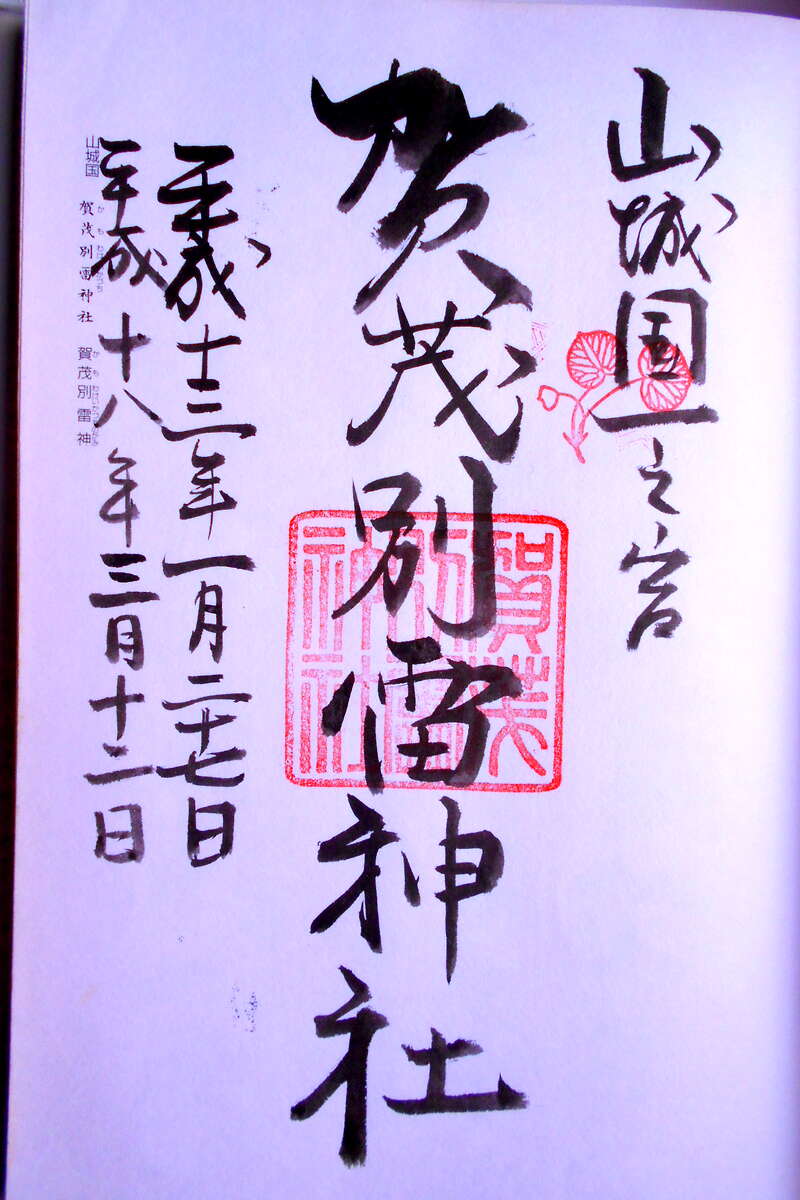 山城国一之宮
賀茂別雷神社
賀茂
別雷
神社
平成十三年一月二十七日
平成十八年三月十二日
山城国 賀茂別雷神社 賀茂別雷神